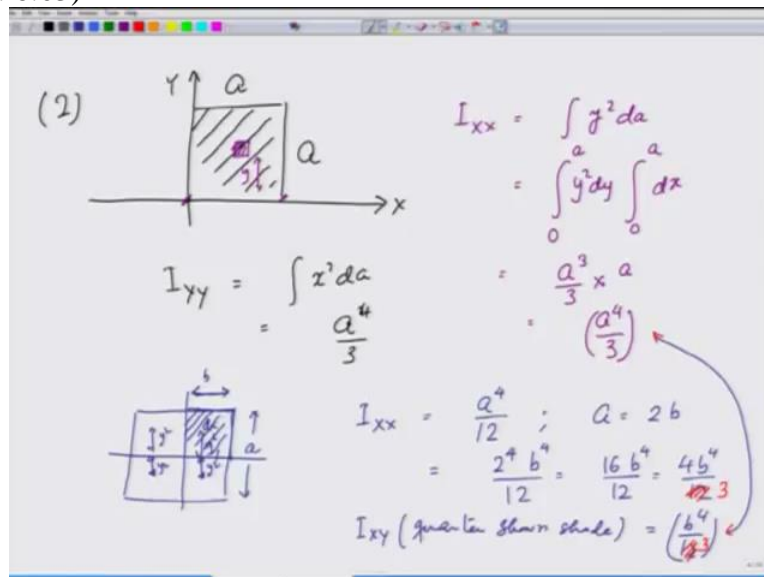 (2)
Y
a
a
y
X
I_XX = ∫ y² da
= ∫₀ᵃ y² dy ∫₀ᵃ dx
= a³/3 × a
= (a⁴/3)
I_YY = ∫ x² da
= a⁴/3
b
a
y²
y²
y²
I_XX = a⁴/12 ; a = 2b
= 2⁴ b⁴/12 = 16 b⁴/12 = 4b⁴/3
I_XY (quarter shown shade) = (b⁴/3)